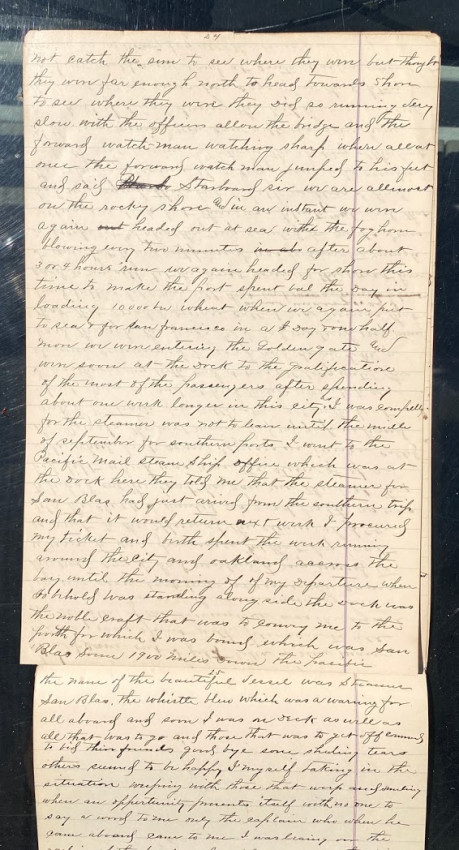 24
not catch the sun to see where they wer but thought
they wer far enough north to head towards Shore
to see where they wer they Did so running very
slow with the officers allon the bridge and the
forward watch man watching sharp when all at
once the forward watch man jumped to his feet
and said Starboard sir we are allmost
on the rocky shore and in an instant we wer
again headed out at sea with the fog horn
blowing every two minutes after about
3 or 4 hours run we again headed for shore this
time to make the port spent bal the Day in
loading 10000 bu wheat when we again put
to sea & for San francisco in a 1 Day & one half
more we wer entering the Golden gate and
wer soon at the Dock to the gratification
of the most of the passengers after spending
about one week longer in this city as I was compelled
for the steamer was not to leave until the midle
of september for southern ports I went to the
Pacific Mail Steam Ship office which was at
the Dock here they told me that the steamer for
San Blas had just arived from the southern trip
and that it would return next week I procured
my ticket and birth spent the week running
around the City and oakland accross the
bay until the morning of of my Departure when
to behold was standing along side the Dock was
the noble craft that was to convey me to the
port for which I was bound which was San
Blas some 1900 miles down the pacific
the name of the beautiful vessel was Steamer
San Blas. the whistle blew which was a warning for
all aboard and soon I was on Deck as well as
all that was to go and those that was to get off commenced
to bid thier friends good bye some sheding tears
others seemed to be happy I myself taking in the
situation weeping with those that weep and smiling
when an oppertunity presents itself with no one to
say a word to me only the captain who when he
came aboard came to me I was leaning over the